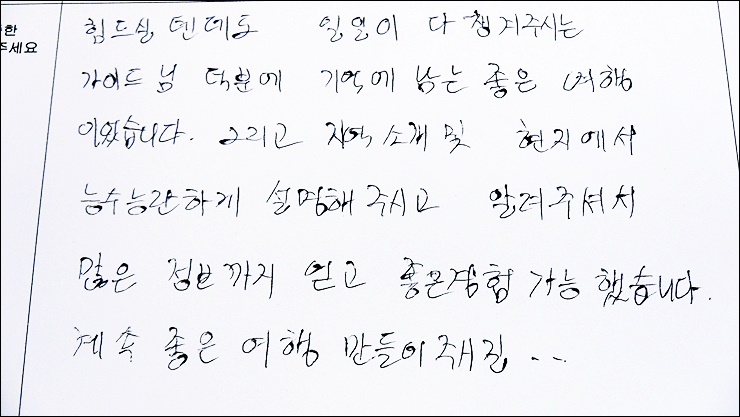 한
주세요
힘드실텐데도 일일이 다 챙겨주시는
가이드님 덕분에 기억에 남는 좋은 여행
이었습니다. 그리고 지역소개및 현지에서
능수능란하게 설명해주시고 알려주셔서
많은 정보까지 얻고 좋은경험 가능했습니다.
계속 좋은 여행 만들어주시길 ..